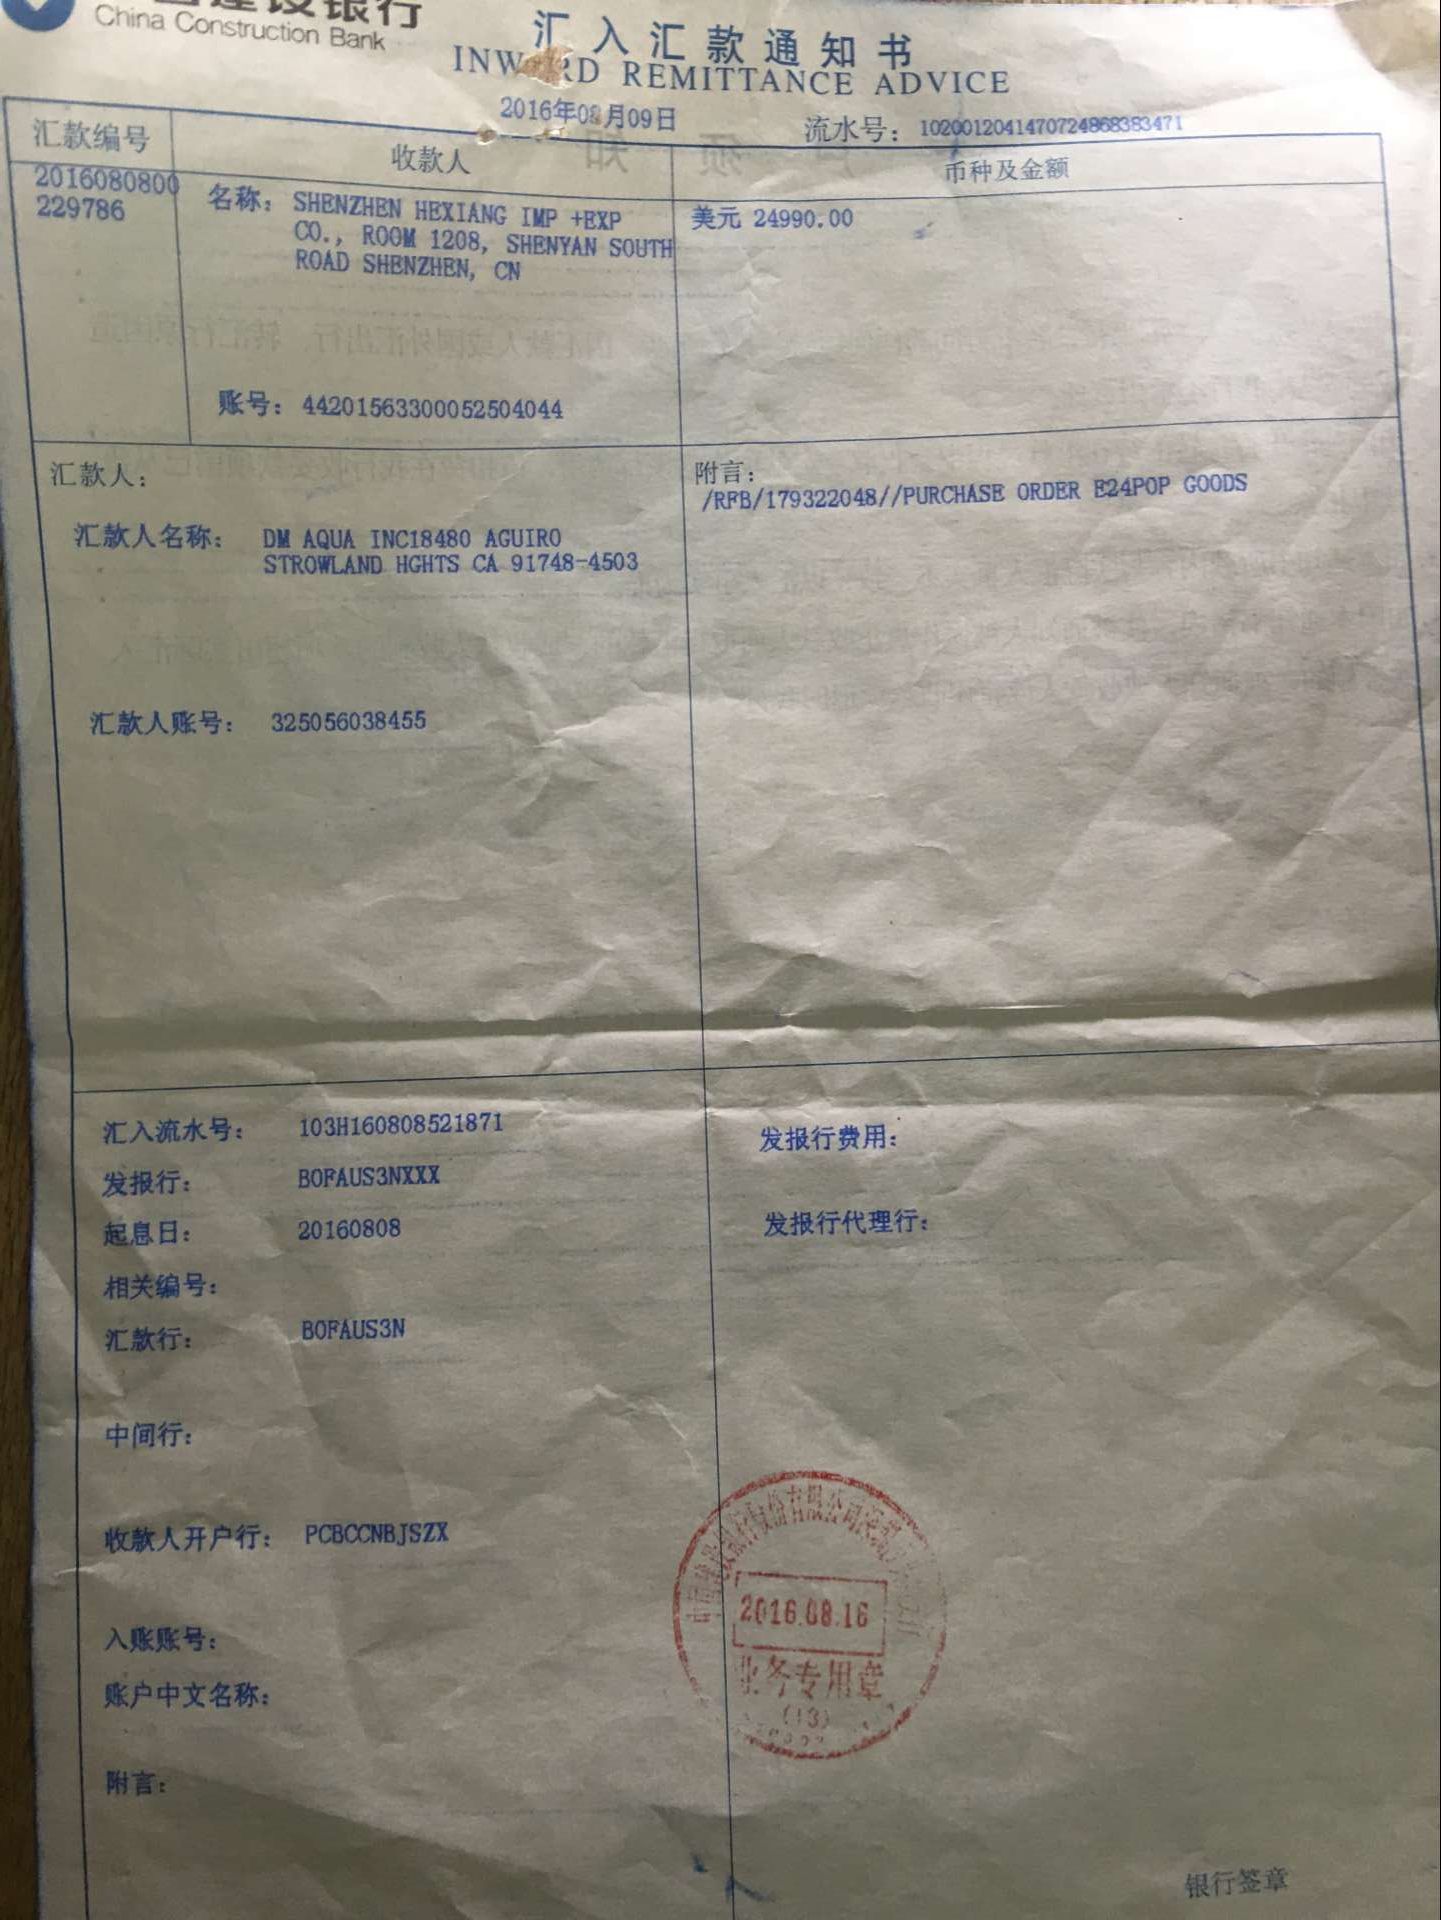 建设银行
China Construction Bank
汇入汇款通知书
REMITTANCE ADVICE
2016年08月09日
流水号：1020012041470724868383471
汇款编号
收款人
币种及金额
2016080800
229786
名称：SHENZHEN HEXIANG IMP +EXP
CO., ROOM 1208, SHENYAN SOUTH
ROAD SHENZHEN, CN
美元 24990.00
账号：44201563300052504044
汇款人：
附言：
/RFB/179322048//PURCHASE ORDER E24POP GOODS
汇款人名称：DM AQUA INC18480 AGUIRO
STROWLAND HGHTS CA 91748-4503
汇款人账号：325056038455
汇入流水号：103H160808521871
发报行费用：
发报行：BOFAUS3NXXX
起息日：20160808
发报行代理行：
相关编号：
汇款行：BOFAUS3N
中间行：
收款人开户行：PCBCCNBJSZX
入账账号：
账户中文名称：
附言：
2016.08.16
业务专用章
(13)
银行签章